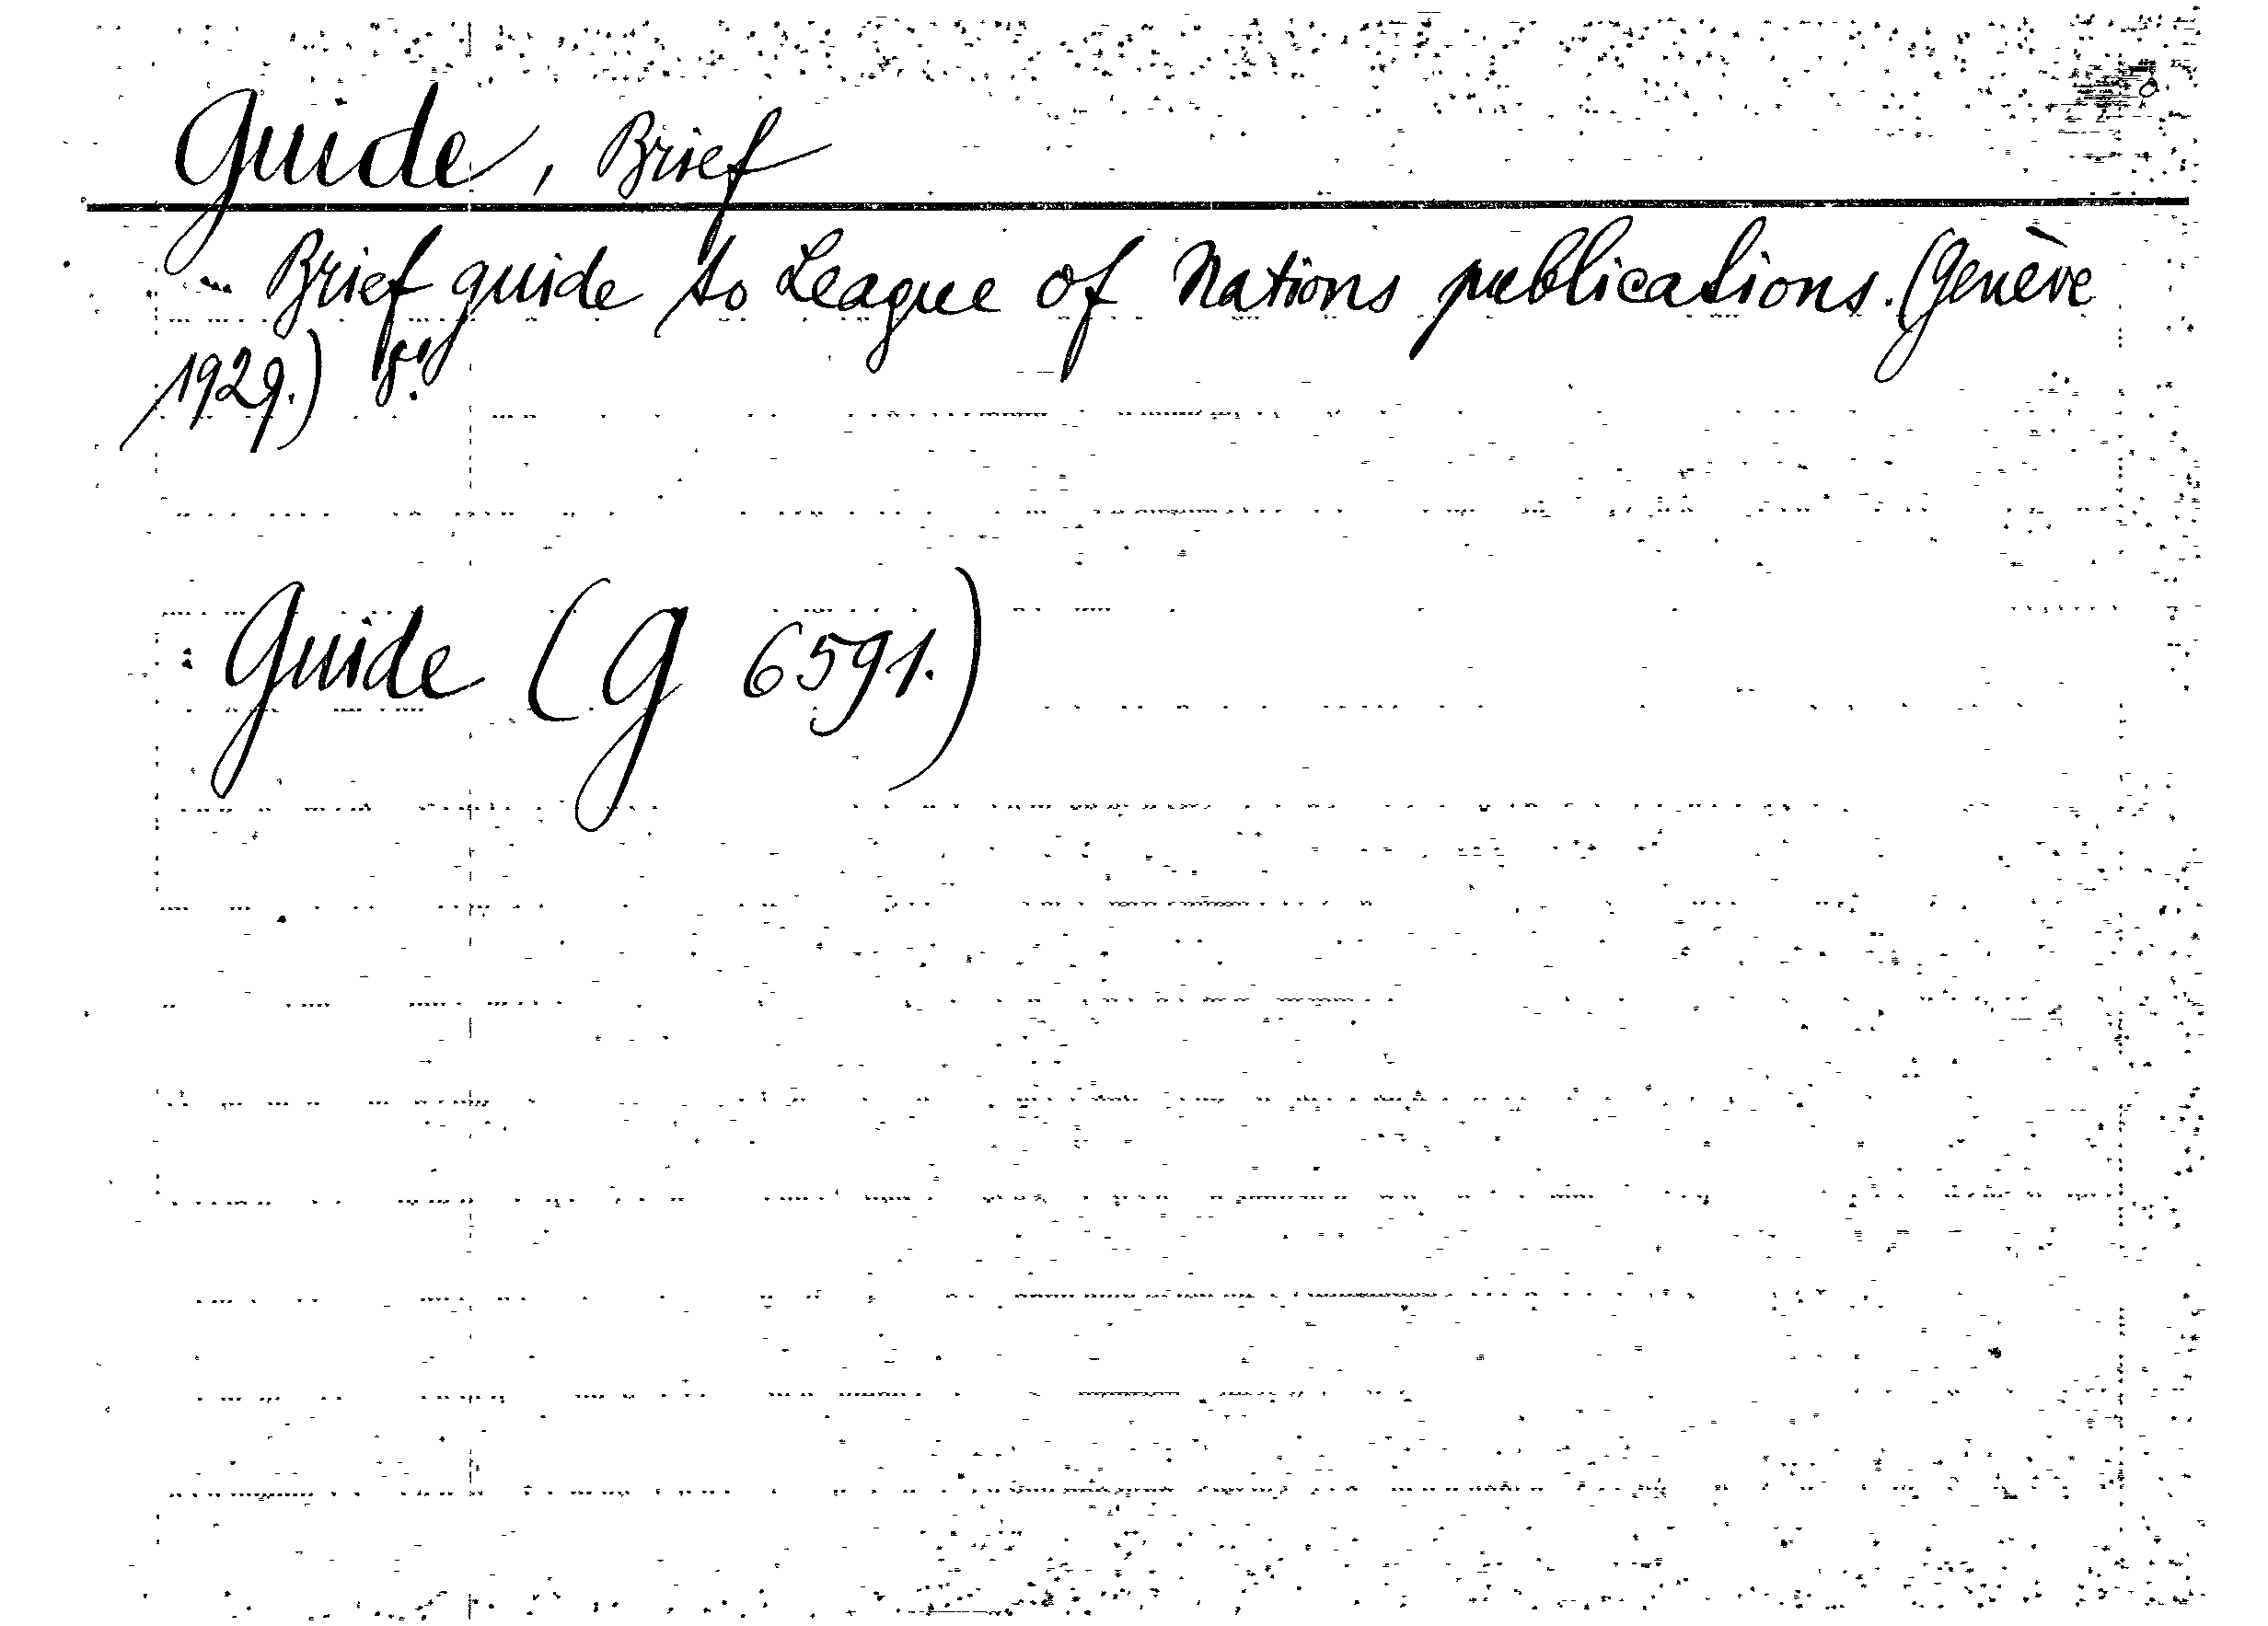 Guide, Brief
Brief guide to League of Nations publications. (Genève
1929.) 8°.
Guide (G 6591.)